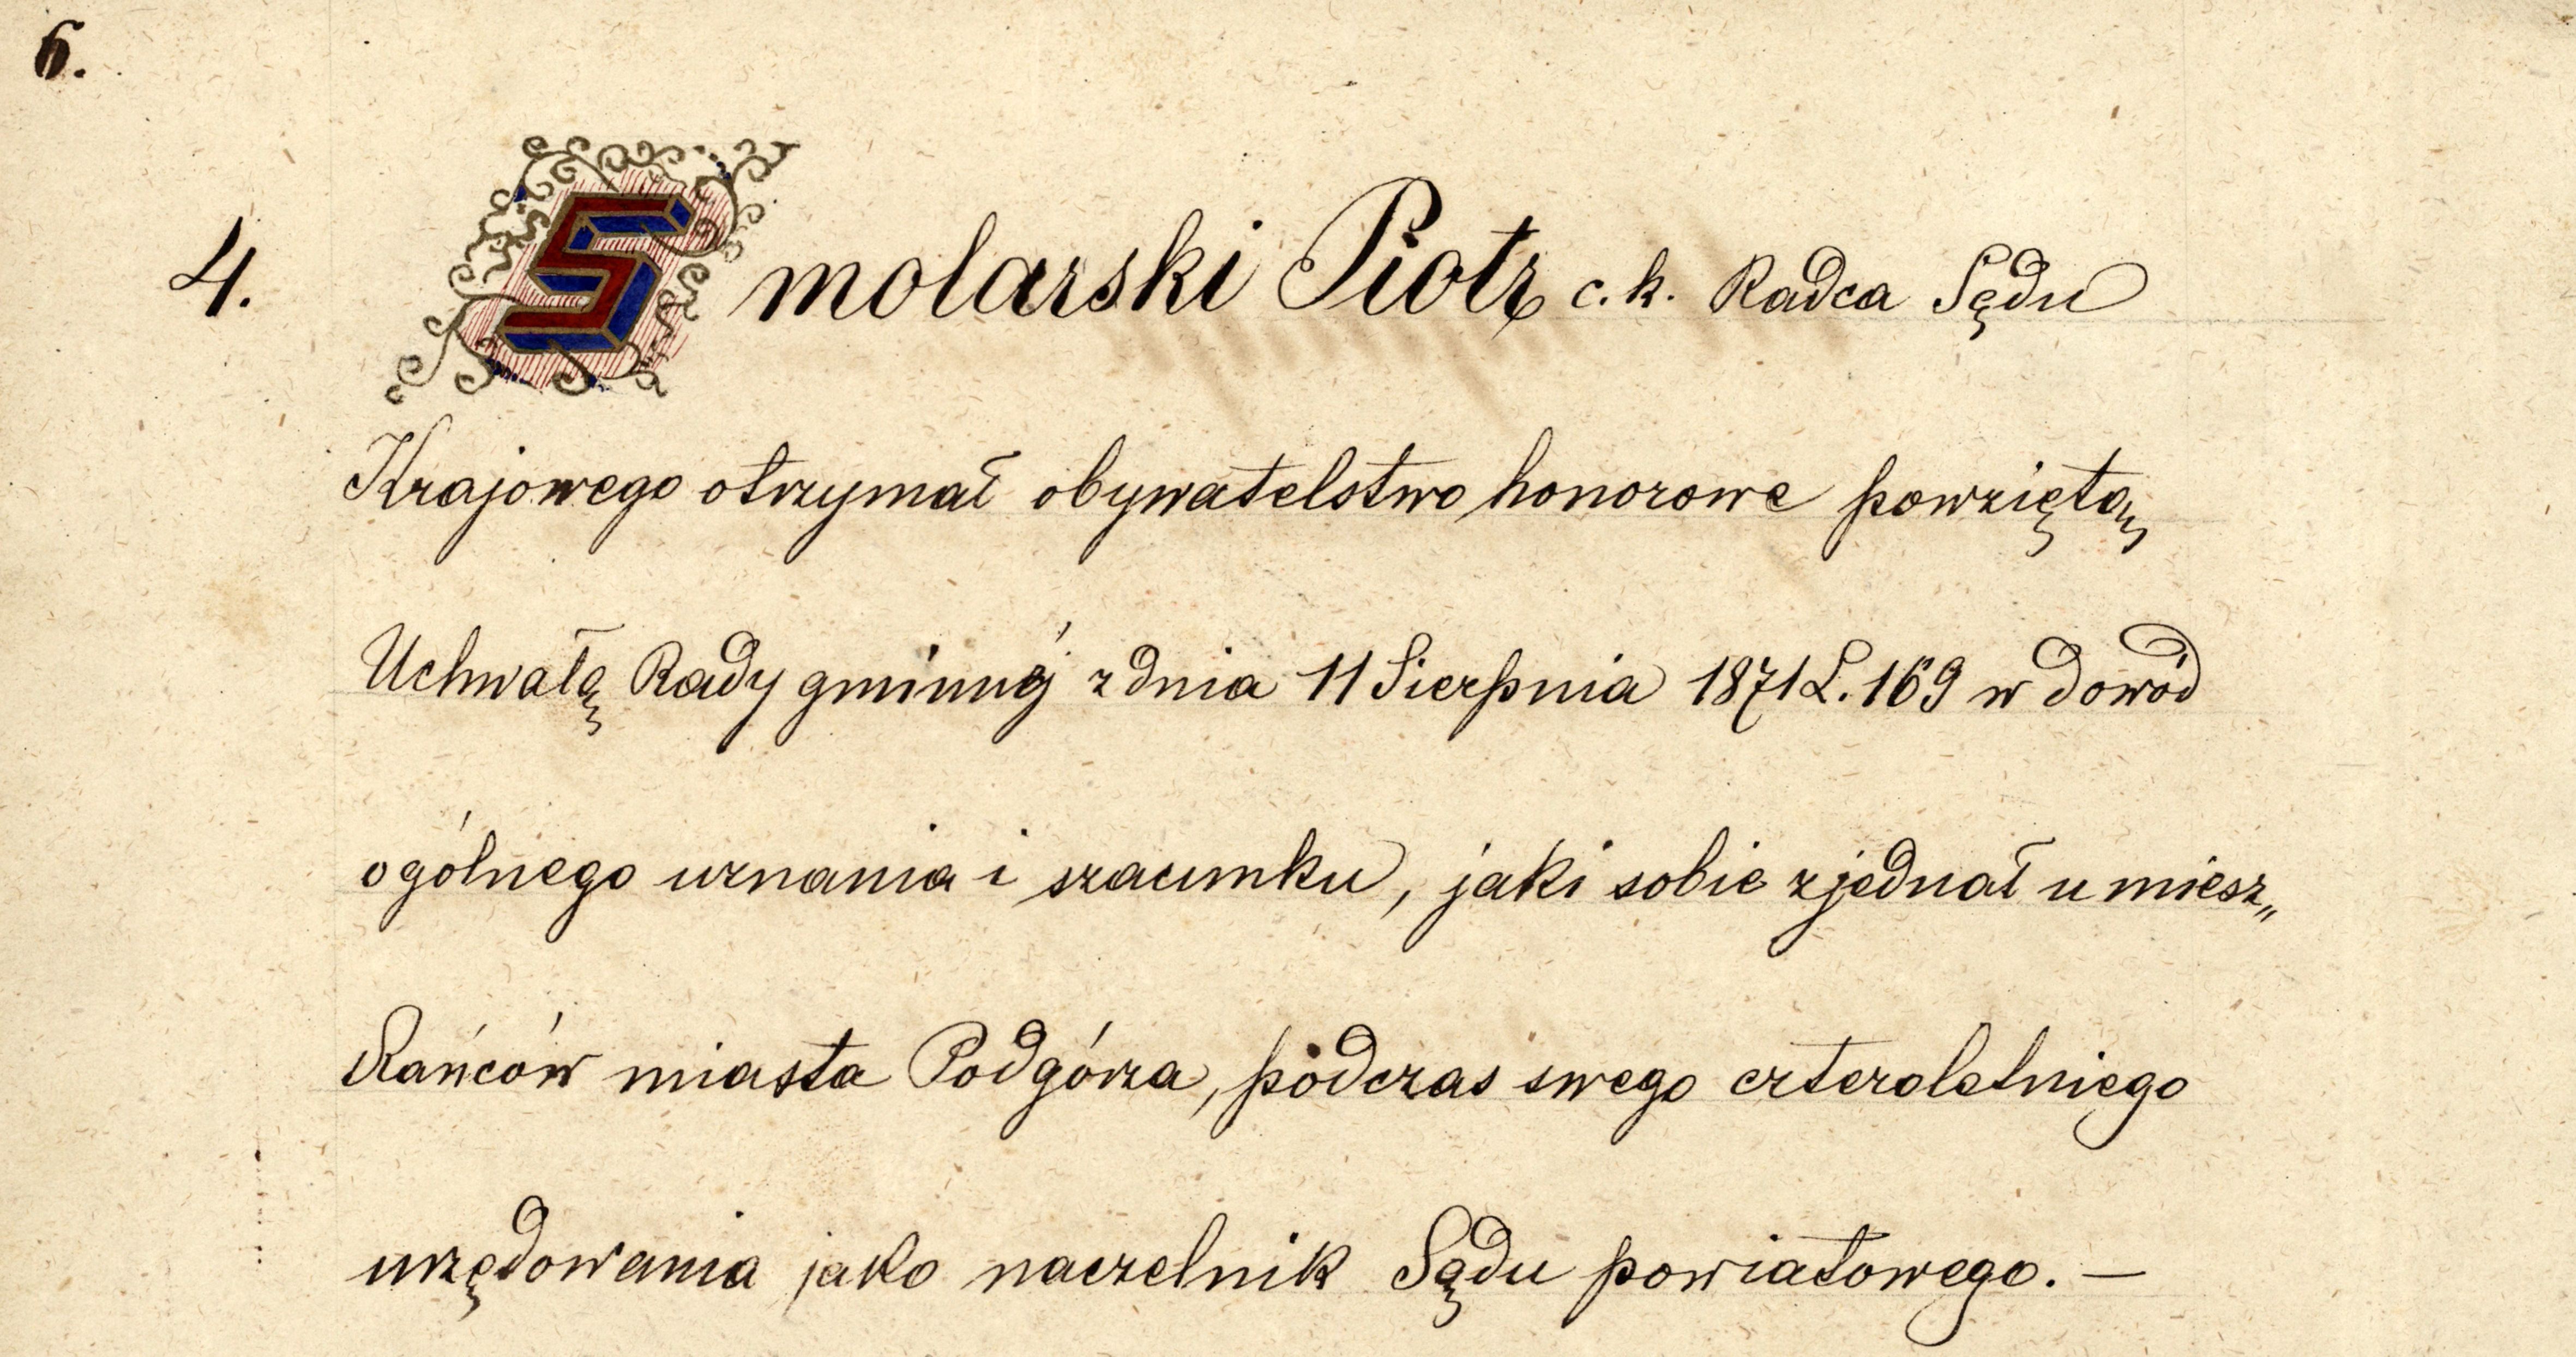 6.
4. Smolarski Piotr c.k. Radca Sądu
Krajowego otrzymał obywatelstwo honorowe powziętą
Uchwałą Rady gminnéj z dnia 11 Sierpnia 1871 L. 169 w dowód
ogólnego uznania i szacunku, jaki sobie zjednał u miesz„
kańców miasta Podgórza, podczas swego czteroletniego
urzędowania jako naczelnik Sądu powiatowego. —